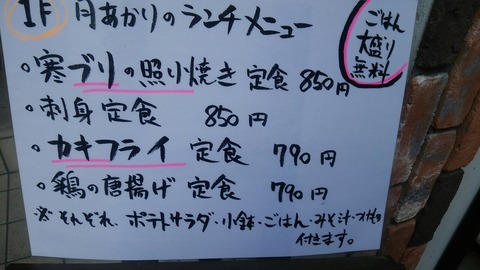 1F 月あかりのランチメニュー
ごはん
大盛り
無料
○寒ブリの照り焼き定食 850円
○刺身定食 850円
○カキフライ定食 790円
○鶏の唐揚げ定食 790円
※それぞれ、ポテトサラダ・小鉢・ごはん・みそ汁・つけもの
付きます。